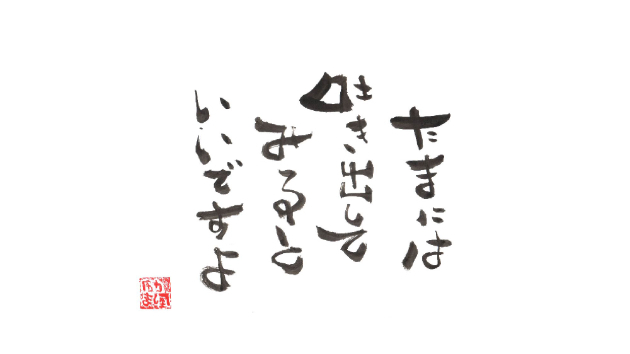 たまには
吐き出して
みると
いいですよ